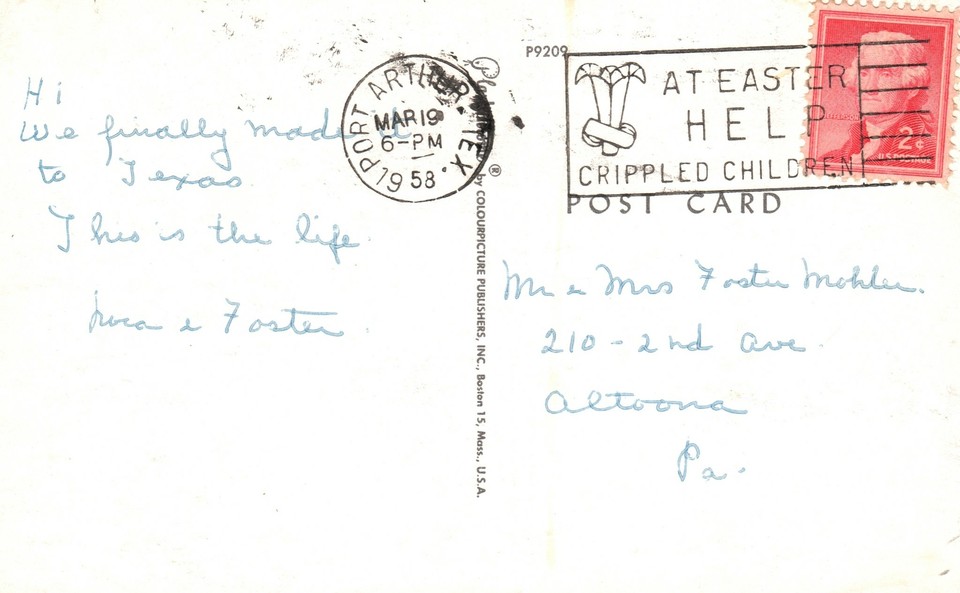 Hi
We finally made it
to Texas
This is the life
& Foster
PORT ARTHUR TEX
MAR 19
6-PM
1958
Plastichrome ®
by COLOURPICTURE PUBLISHERS, INC., Boston 15, Mass., U.S.A.
P9209
AT EASTER
HELP
CRIPPLED CHILDREN
JEFFERSON
2¢
U.S. POSTAGE
POST CARD
Mr & Mrs Foster Mohler.
210-2nd Ave.
Altoona
Pa.